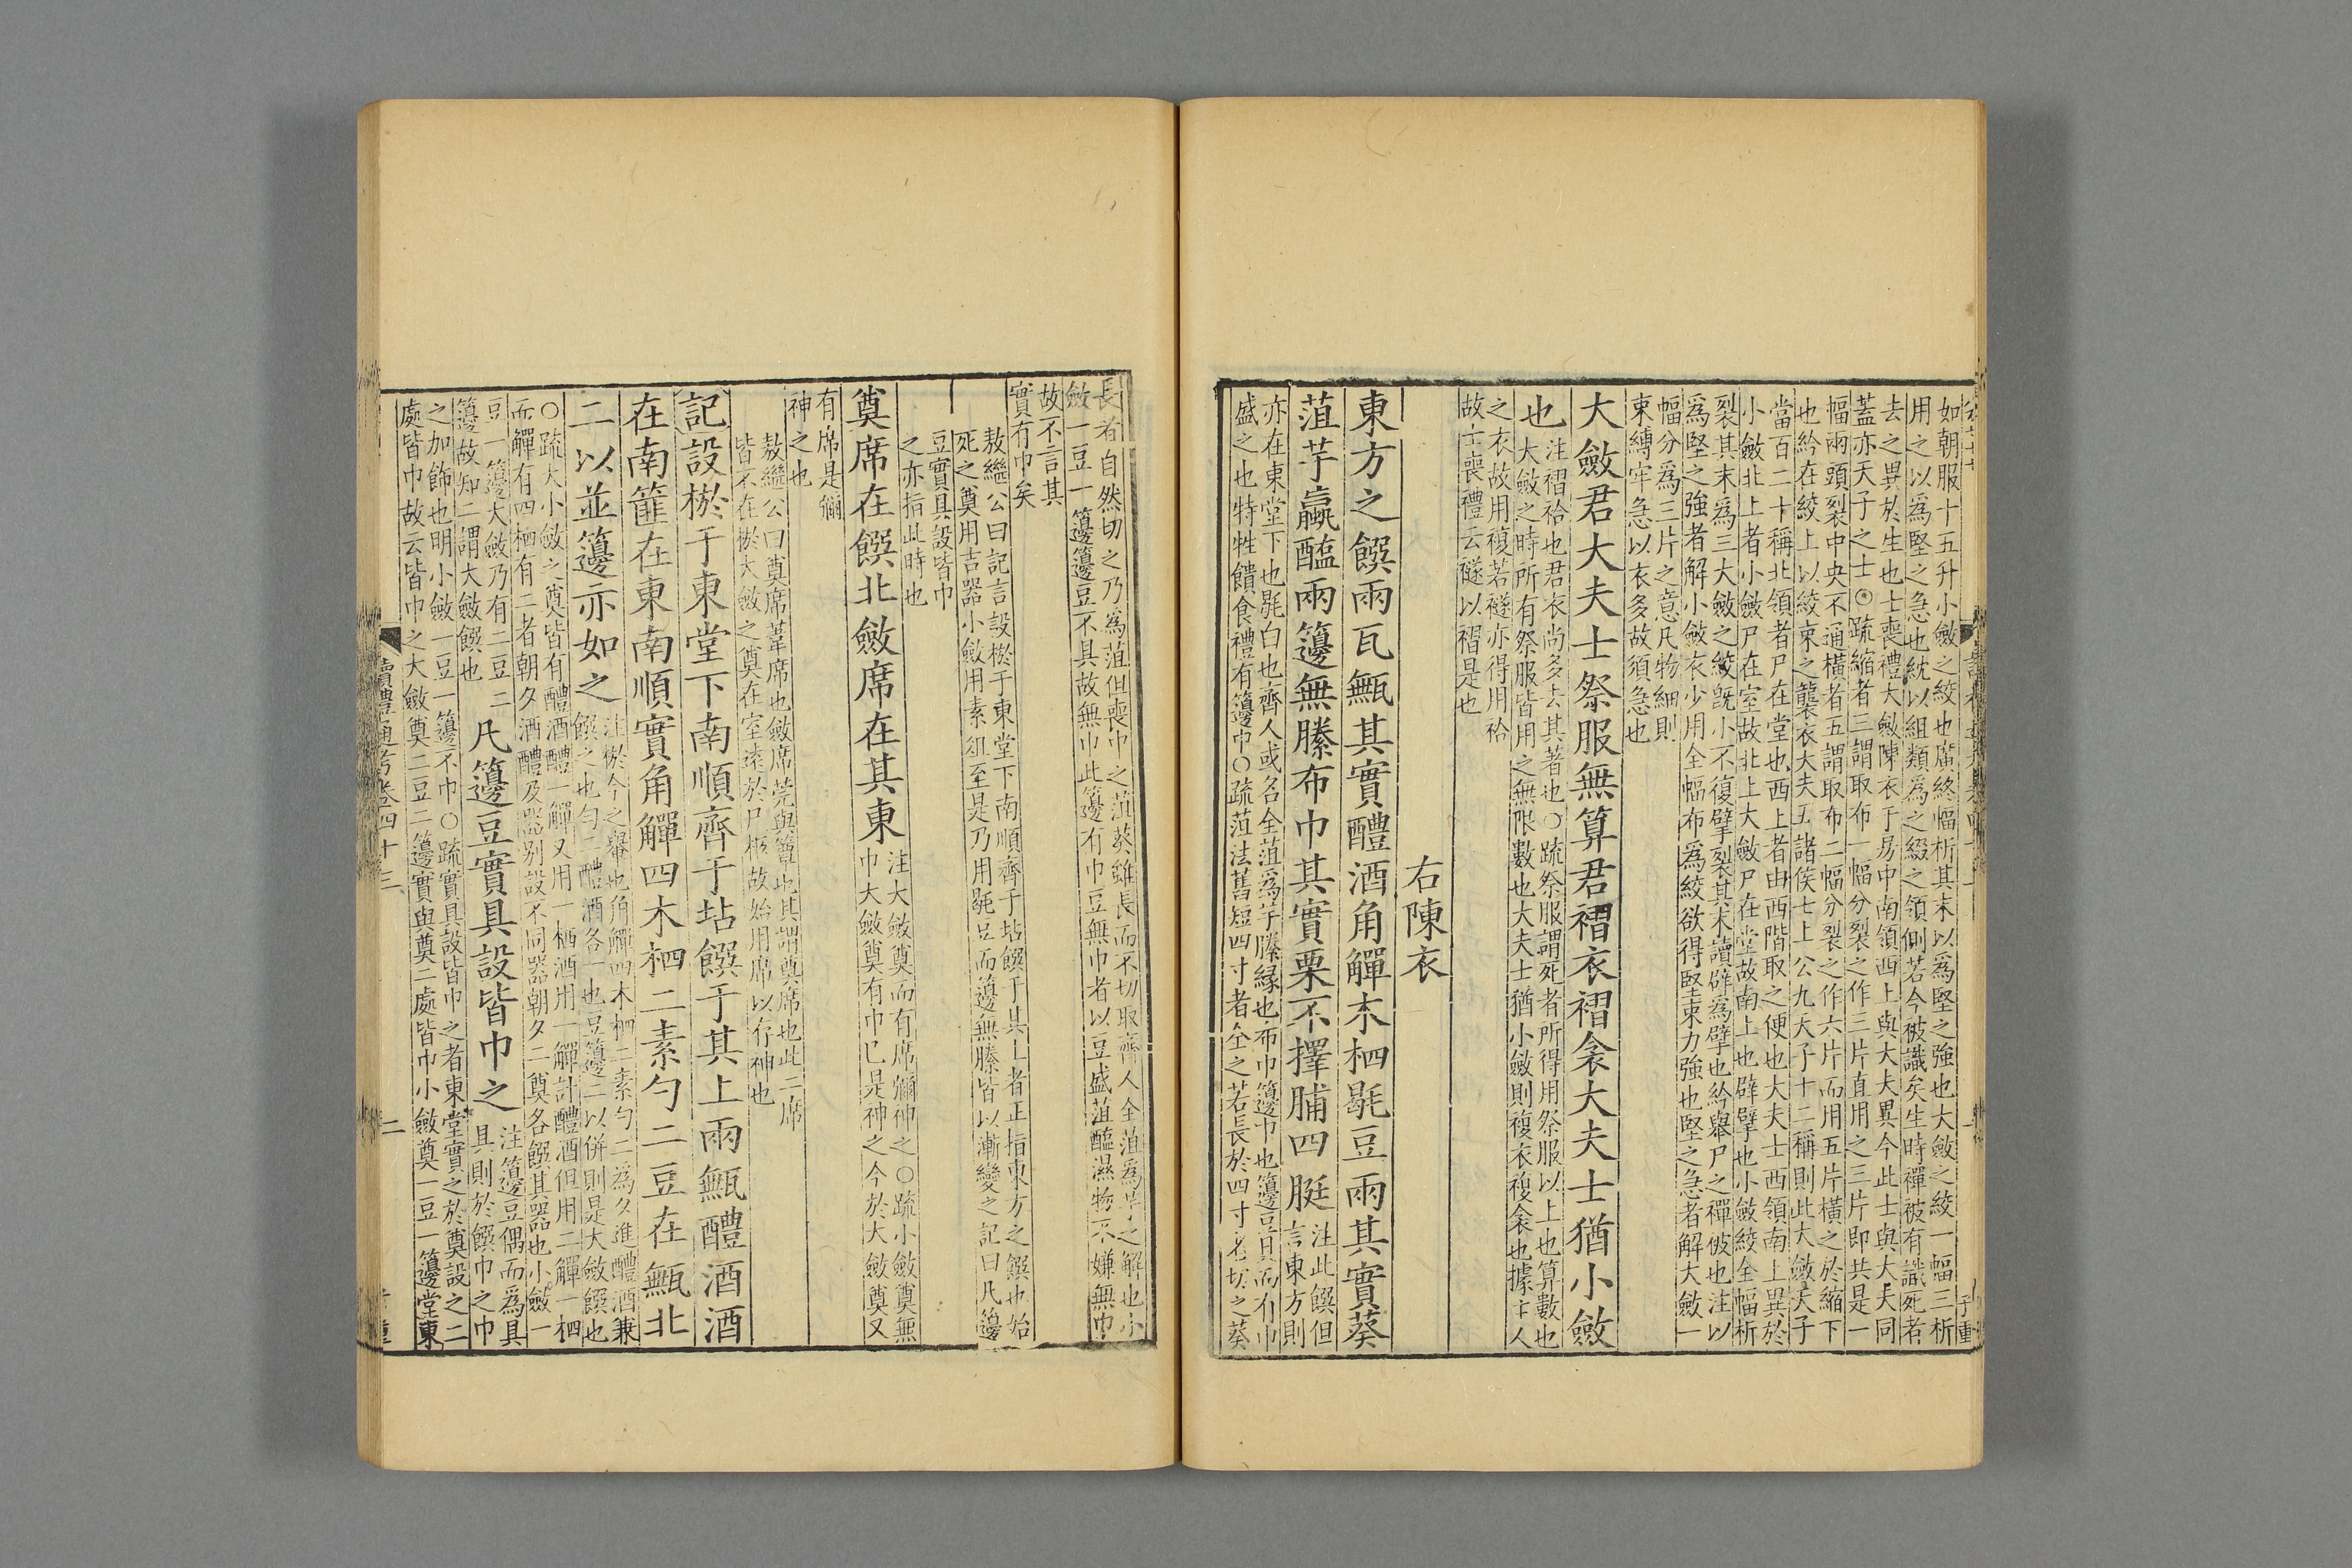 如朝服十五升小斂之絞也廣終幅析其末以爲堅之強也大斂之絞一幅三析
用之以爲堅之急也紞以組類爲之綴之領側若今被識矣生時禪被有識死者
去之異於生也士喪禮大斂陳衣于房中南領西上與大夫異今此士與大夫同
蓋亦天子之士○疏縮者三謂取布一幅分裂之作三片直用之三片即共是一
幅兩頭裂中央不通橫者五謂取布二幅分裂之作六片而用五片橫之於縮下
也紟在絞上以絞束之襲衣大夫五諸侯七上公九天子十二稱則此大斂天子
當百二十稱北領者尸在堂也西上者由西階取之便也大夫士西領南上異於
小斂北上者小斂尸在室故北上大斂尸在堂故南上也辟擘也小斂絞全幅析
裂其末爲三大斂之絞既小不復擘裂其末讀辟爲擘也紟舉尸之禪被也注以
爲堅之強者解小斂衣少用全幅布爲絞欲得堅束力強也堅之急者解大斂一
幅分爲三片之意凡物細則
束縛牢急以衣多故須急也
大斂君大夫士祭服無算君褶衣褶衾大夫士猶小斂
也
注褶袷也君衣尚多去其著也○疏祭服謂死者所得用祭服以上也算數也
大斂之時所有祭服皆用之無限數也大夫士猶小斂則複衣複衾也據主人
之衣故用複若襚亦得用袷
故士喪禮云襚以褶是也
右陳衣
東方之饌兩瓦甒其實醴酒角觶木柶毼豆兩其實葵
菹芋蠃醢兩籩無縢布巾其實栗不擇脯四脡
注此饌但
言東方則
亦在東堂下也毼白也齊人或名全菹爲芋縢緣也布巾籩巾也籩豆具而有巾
盛之也特牲饋食禮有籩巾○疏菹法舊短四寸者全之若長於四寸者切之葵
長者自然切之乃爲菹但喪中之菹葵雖長而不切取齊人全菹爲芋之解也小
斂一豆一籩籩豆不具故無巾此籩有巾豆無巾者以豆盛菹醢濕物不嫌無巾
故不言其
實有巾矣
敖繼公曰記言設棜于東堂下南順齊于坫饌于其上者正指東方之饌也始
死之奠用吉器小斂用素俎至是乃用毼豆而籩無縢皆以漸變之記曰凡籩
豆實具設皆巾
之亦指此時也
奠席在饌北斂席在其東
注大斂奠而有席彌神之○疏小斂奠無
巾大斂奠有巾已是神之今於大斂奠又
有席是彌
神之也
敖繼公曰奠席葦席也斂席莞與簟也其謂奠席也此二席
皆不在棜大斂之奠在室遠於尸柩故始用席以存神也
記設棜于東堂下南順齊于坫饌于其上兩甒醴酒酒
在南篚在東南順實角觶四木柶二素勺二豆在甒北
二以並籩亦如之
注棜今之轝也角觶四木柶二素勺二爲夕進醴酒兼
饌之也勺二醴酒各一也豆籩二以併則是大斂饌也
○疏大小斂之奠皆有醴酒醴一觶又用一柶酒用一觶計醴酒但用二觶一柶
而觶有四柶有二者朝夕酒醴及器別設不同器朝夕二奠各饌其器也小斂一
豆一籩大斂乃有二豆二
籩故知二謂大斂饌也
凡籩豆實具設皆巾之
注籩豆偶而爲具
具則於饌巾之巾
之加飾也明小斂一豆一籩不巾○疏實具設皆巾之者東堂實之於奠設之二
處皆巾故云皆巾之大斂奠二豆二籩實與奠二處皆巾小斂奠一豆一籩堂東
讀禮通考卷四十三
二